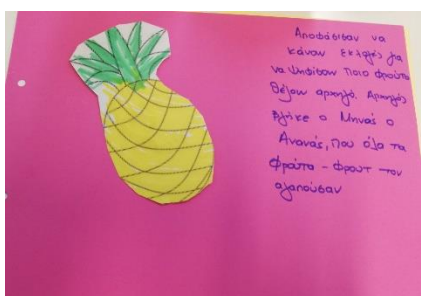 Αποφάσισαν να
κάνουν εκλογές για
να ψηφίσουν ποιο φρούτο
θέλουν αρχηγό. Αρχηγός
βγήκε ο Μηνάς ο
Ανανάς, που όλα τα
φρούτα - φρουτ τον
αγαπούσαν